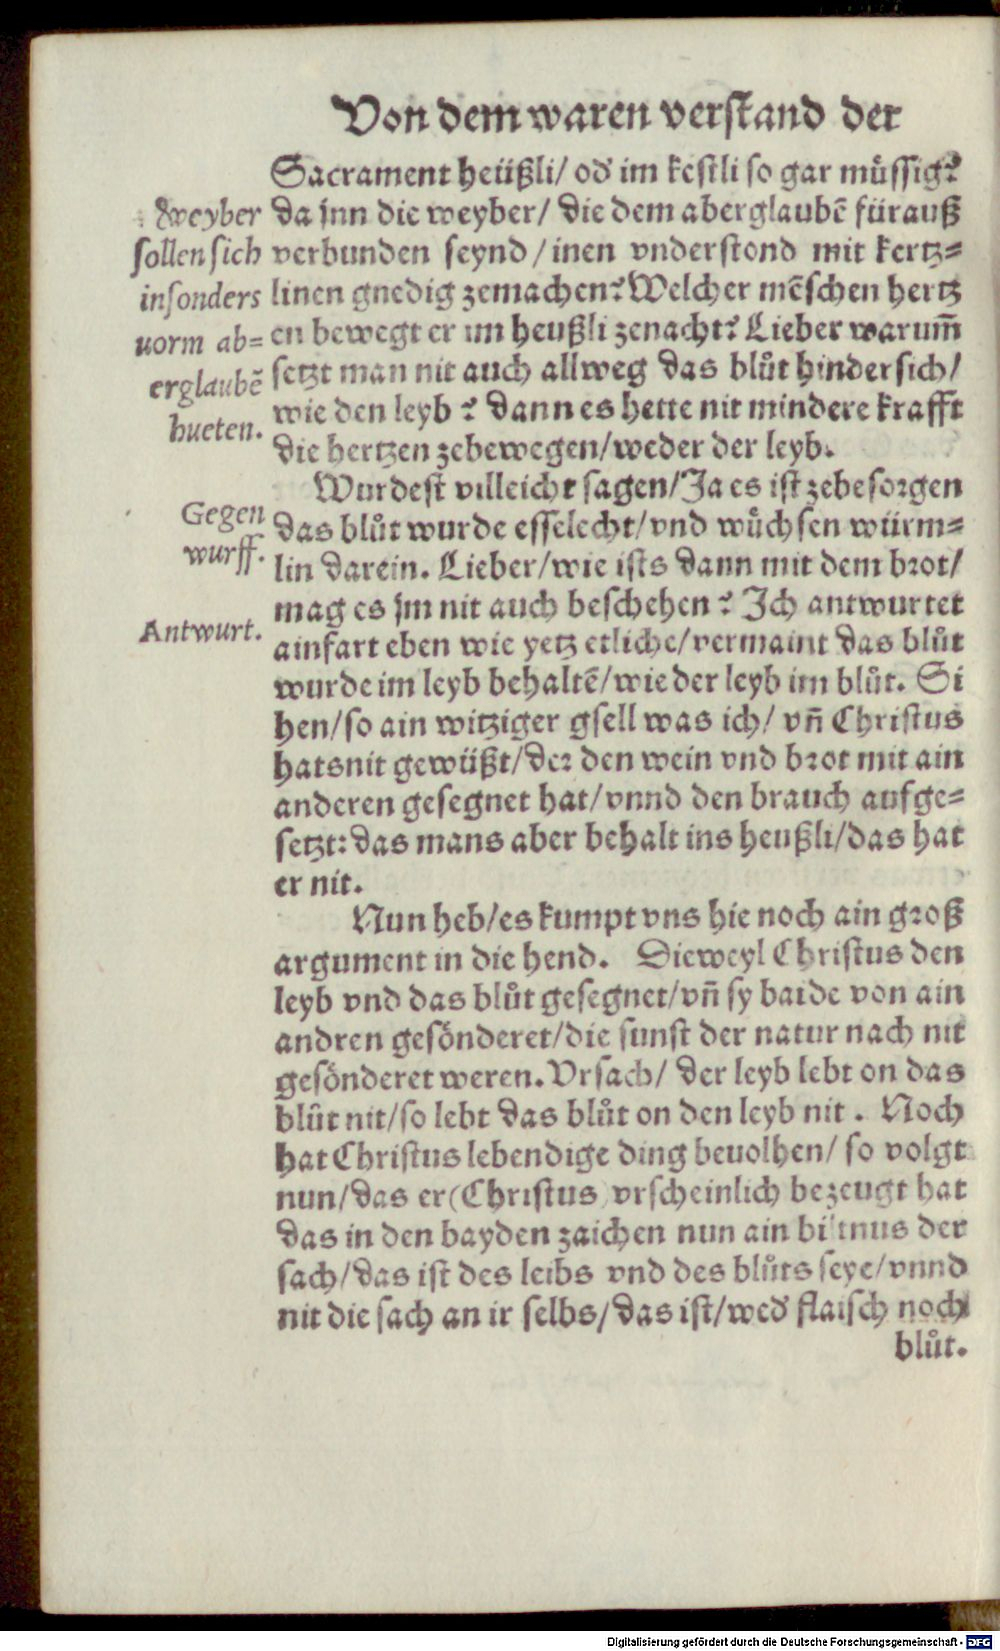 Von dem waren verstand der
Sacrament heüßli/ od' im kestli so gar müssig?
da jnn die weyber/ die dem aberglaubē fürauß
verbunden seynd/ inen vnderstond mit kertz=
linen gnedig zemachen? Welcher mēschen hertz
en bewegt er im heußli zenacht? Lieber warum̄
setzt man nit auch allweg das blůt hindersich/
wie den leyb? dann es hette nit mindere krafft
die hertzen zebewegen/ weder der leyb.
Weyber
sollen sich
insonders
uorm ab=
erglaubē
hueten.
Wurdest villeicht sagen/ Ja es ist zebesorgen
das blůt wurde esselecht/ vnd wůchsen würm=
lin darein. Lieber/ wie ists dann mit dem brot/
mag es jm nit auch beschehen? Ich antwurtet
ainfart eben wie yetz etliche/ vermaint das blůt
wurde im leyb behaltē/ wie der leyb im blůt. Si
hen/ so ain witziger gsell was ich/ vn̄ Christus
hatsnit gewüßt/ der den wein vnd brot mit ain
anderen gesegnet hat/ vnnd den brauch aufge=
setzt: das mans aber behalt ins heußli/ das hat
er nit.
Gegen
wurff.
Antwurt.
Nun heb/ es kumpt vns hie noch ain groß
argument in die hend. Dieweyl Christus den
leyb vnd das blůt gesegnet/ vn̄ sy baide von ain
andren gesönderet/ die sunst der natur nach nit
gesönderet weren. Vrsach/ der leyb lebt on das
blůt nit/ so lebt das blůt on den leyb nit. Noch
hat Christus lebendige ding beuolhen/ so volgt
nun/ das er (Christus) vrscheinlich bezeugt hat
das in den bayden zaichen nun ain biltnus der
sach/ das ist des leibs vnd des blůts seye/ vnnd
nit die sach an ir selbs/ das ist/ wed' flaisch noch
blůt.
Digitalisierung gefördert durch die Deutsche Forschungsgemeinschaft - DFG